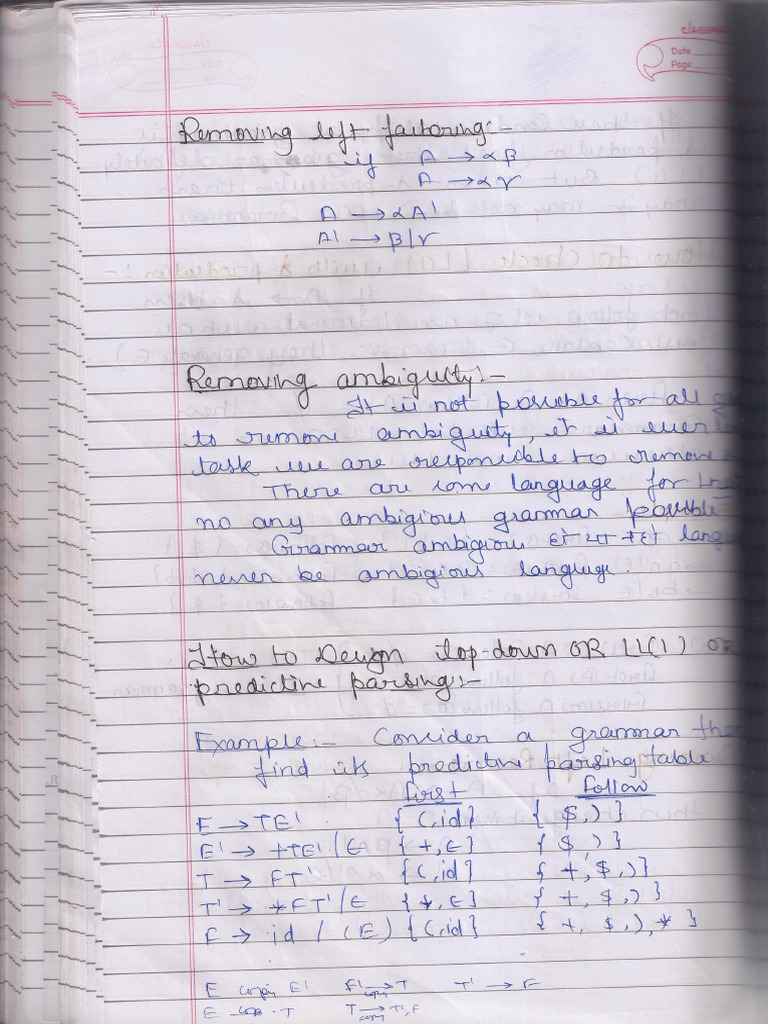 classmate
Date
Page
Removing left factoring:-
if A → αβ
A → αγ
A → αA'
A' → β/γ
Removing ambiguity:-
It is not possible for all
to remove ambiguity, it is
task we are responsible to remove
There are some language for
no any ambigious grammar possible
Grammar ambigious
never be ambigious language.
How to Design top-down OR LL(1) OR
predictive parsing:-
Example:- Consider a grammar
find its predictive parsing table
First Follow
E → TE' { (, id} { $, ) }
E' → +TE' / ∈ { +, ∈} { $, ) }
T → FT' { (, id} { +, $, ) }
T' → *FT' / ∈ { *, ∈} { +, $, ) }
F → id / (E) { (, id} { +, $, ), * }
E copy E' E' → copy T T' → F
E T T → copy T', F